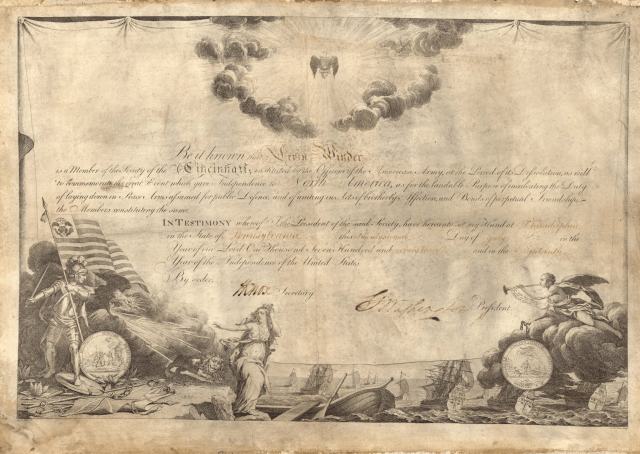 Be it known that Levin Winder
is a Member of the Society of the Cincinnati; instituted by the Officers of the American Army, at the Period of its Dissolution, as well
to commemorate the great Event which gave Independence to North America, as for the laudable Purpose of inculcating the Duty
of laying down in Peace Arms assumed for public Defence, and of uniting in Acts of brotherly Affection, and Bonds of perpetual Friendship,
the Members constituting the same.
IN TESTIMONY whereof I, the President of the said Society, have hereunto set my Hand at Philadelphia
in the State of Pennsylvania this Day of in the
Year of our Lord One Thousand Seven Hundred and and in the
Year of the Independence of the United States.
By order,
Knox Secretary.
G Washington President.